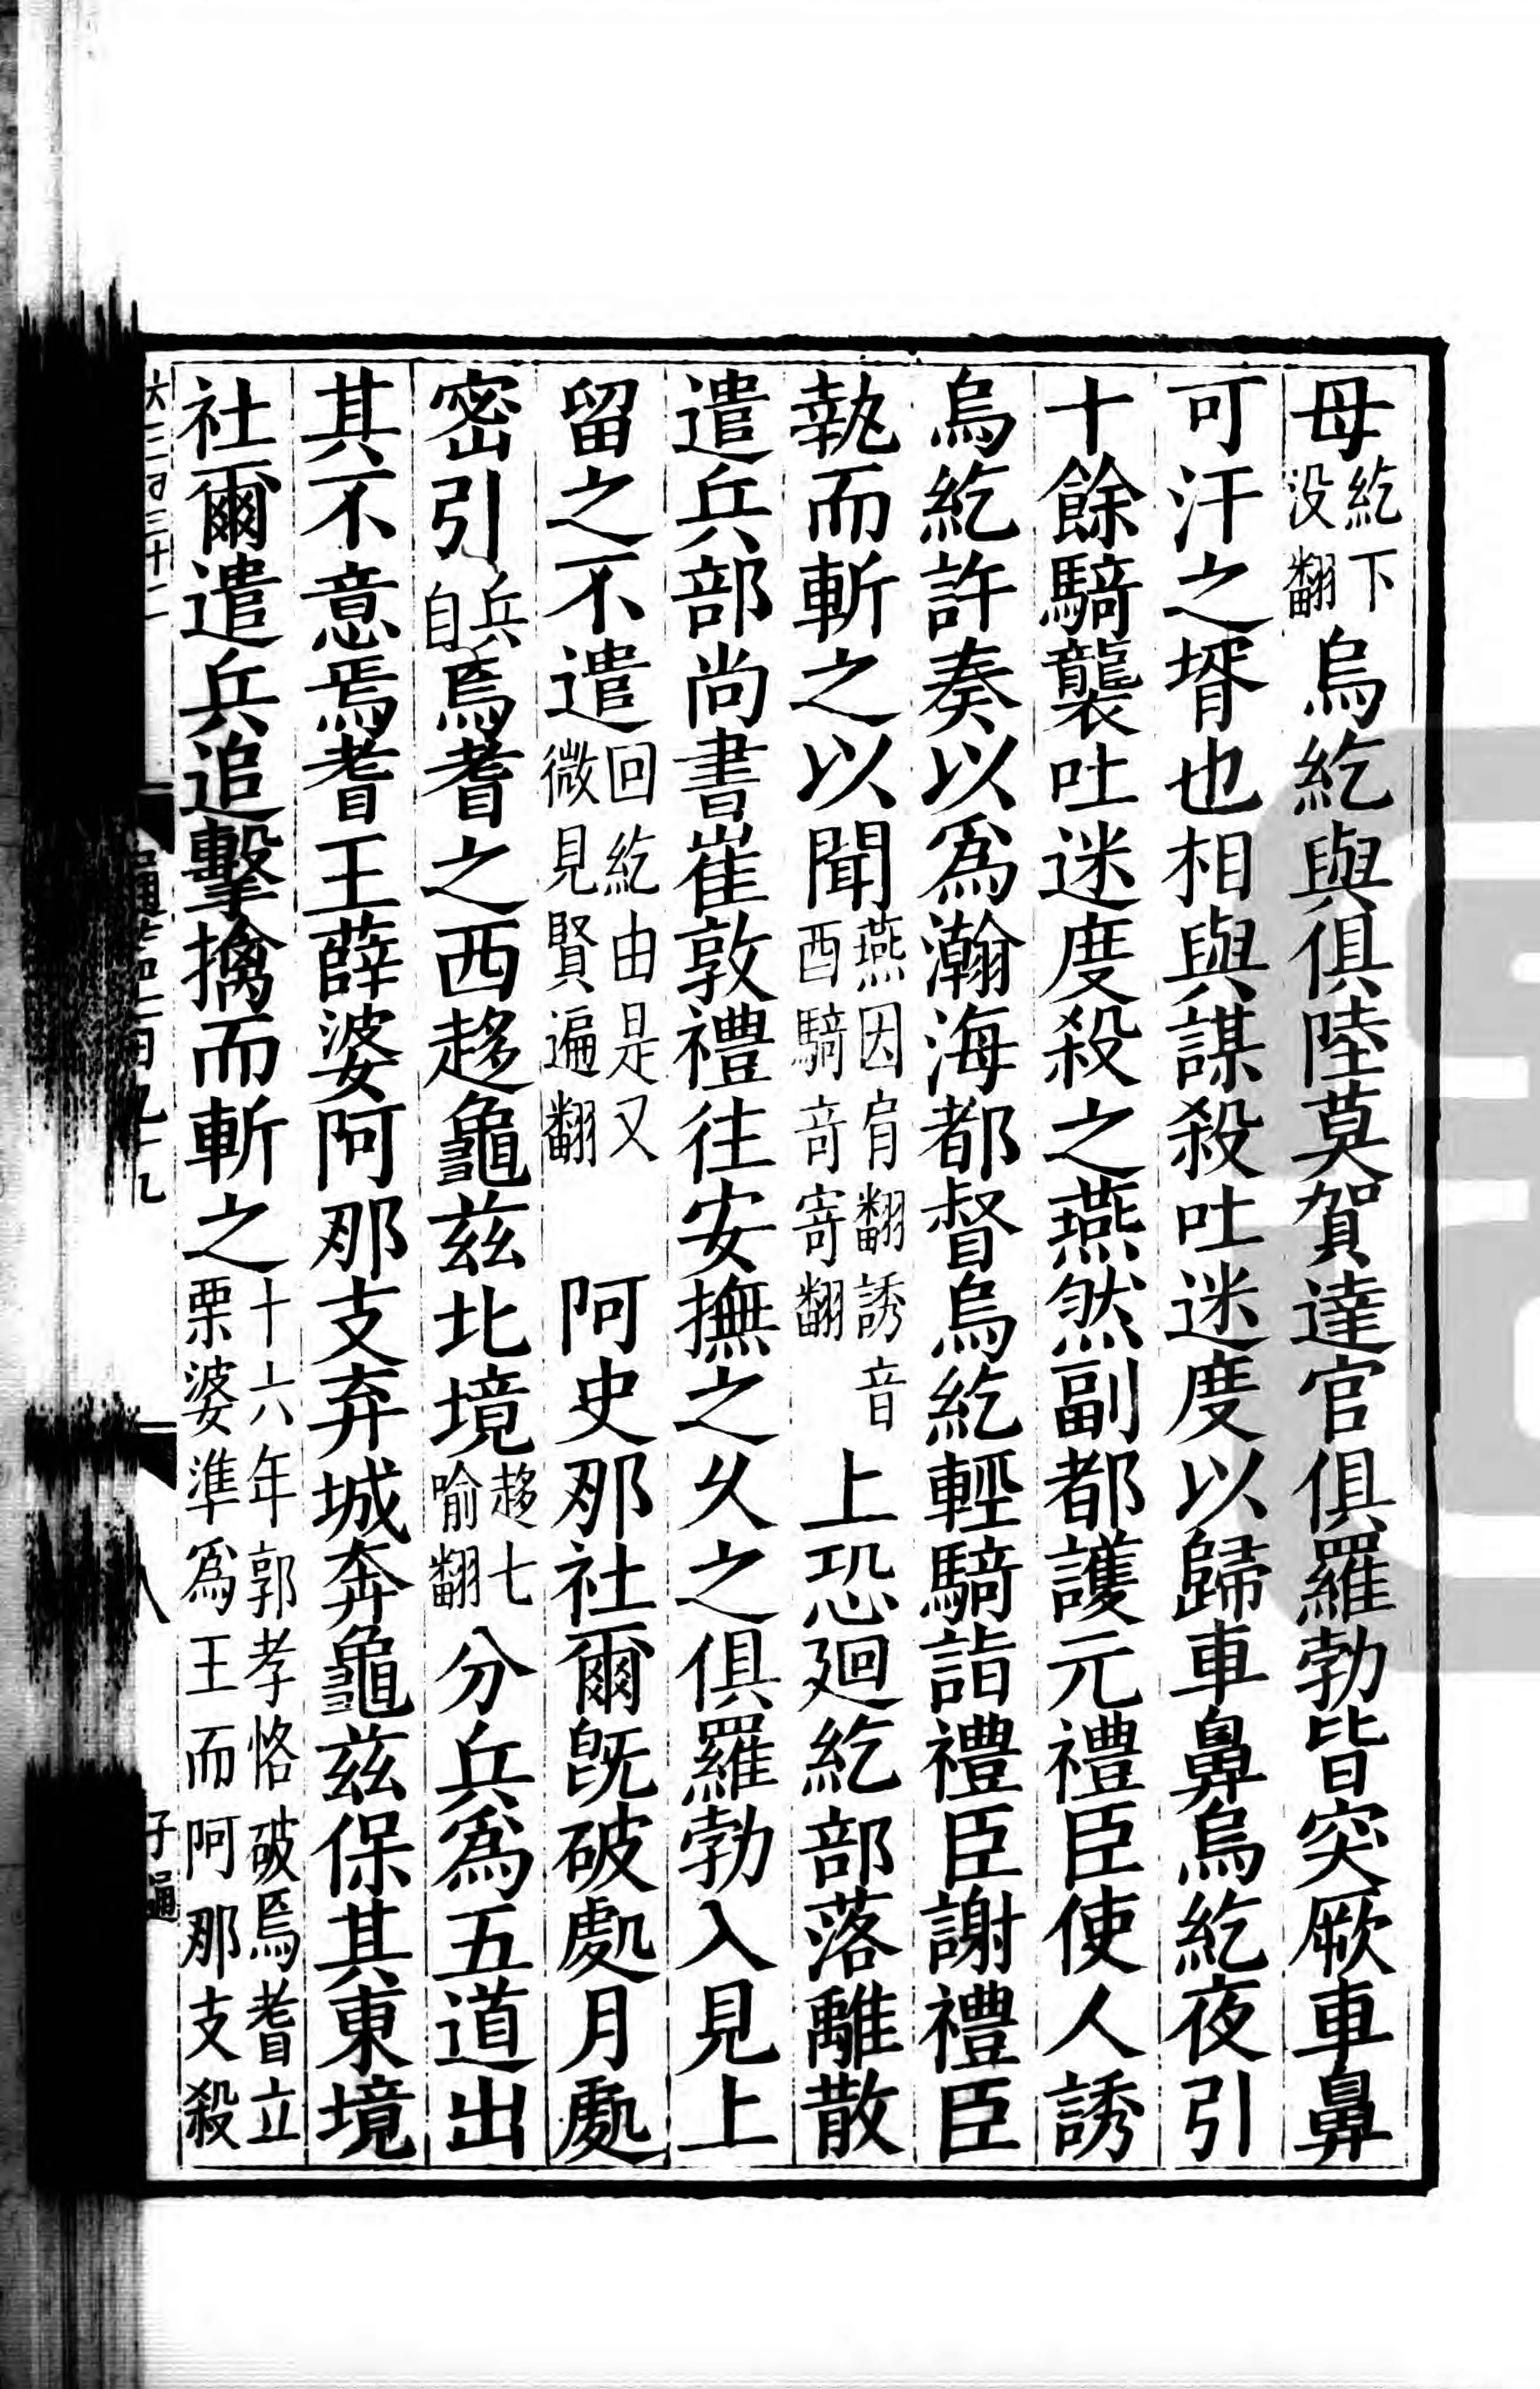 母紇下没翻烏紇與俱陸莫賀達官俱羅勃皆突厥車鼻
可汗之壻也相與謀殺吐迷度以歸車鼻烏紇夜引
十餘騎襲吐迷度殺之燕然副都護元禮臣使人誘
烏紇許奏以爲瀚海都督烏紇輕騎詣禮臣謝禮臣
執而斬之以聞燕因肩翻誘音酉騎奇寄翻上恐廻紇部落離散
遣兵部尚書崔敦禮往安撫之乆之俱羅勃入見上
留之不遣回紇由是又微見賢遍翻阿史那社爾旣破處月處
密引兵自焉耆之西趍龜兹北境趍七喻翻分兵爲五道出
其不意焉耆王薛婆阿那支弃城奔龜兹保其東境
社爾遣兵追擊擒而斬之十六年郭孝恪破焉耆立栗婆準爲王而阿那支殺